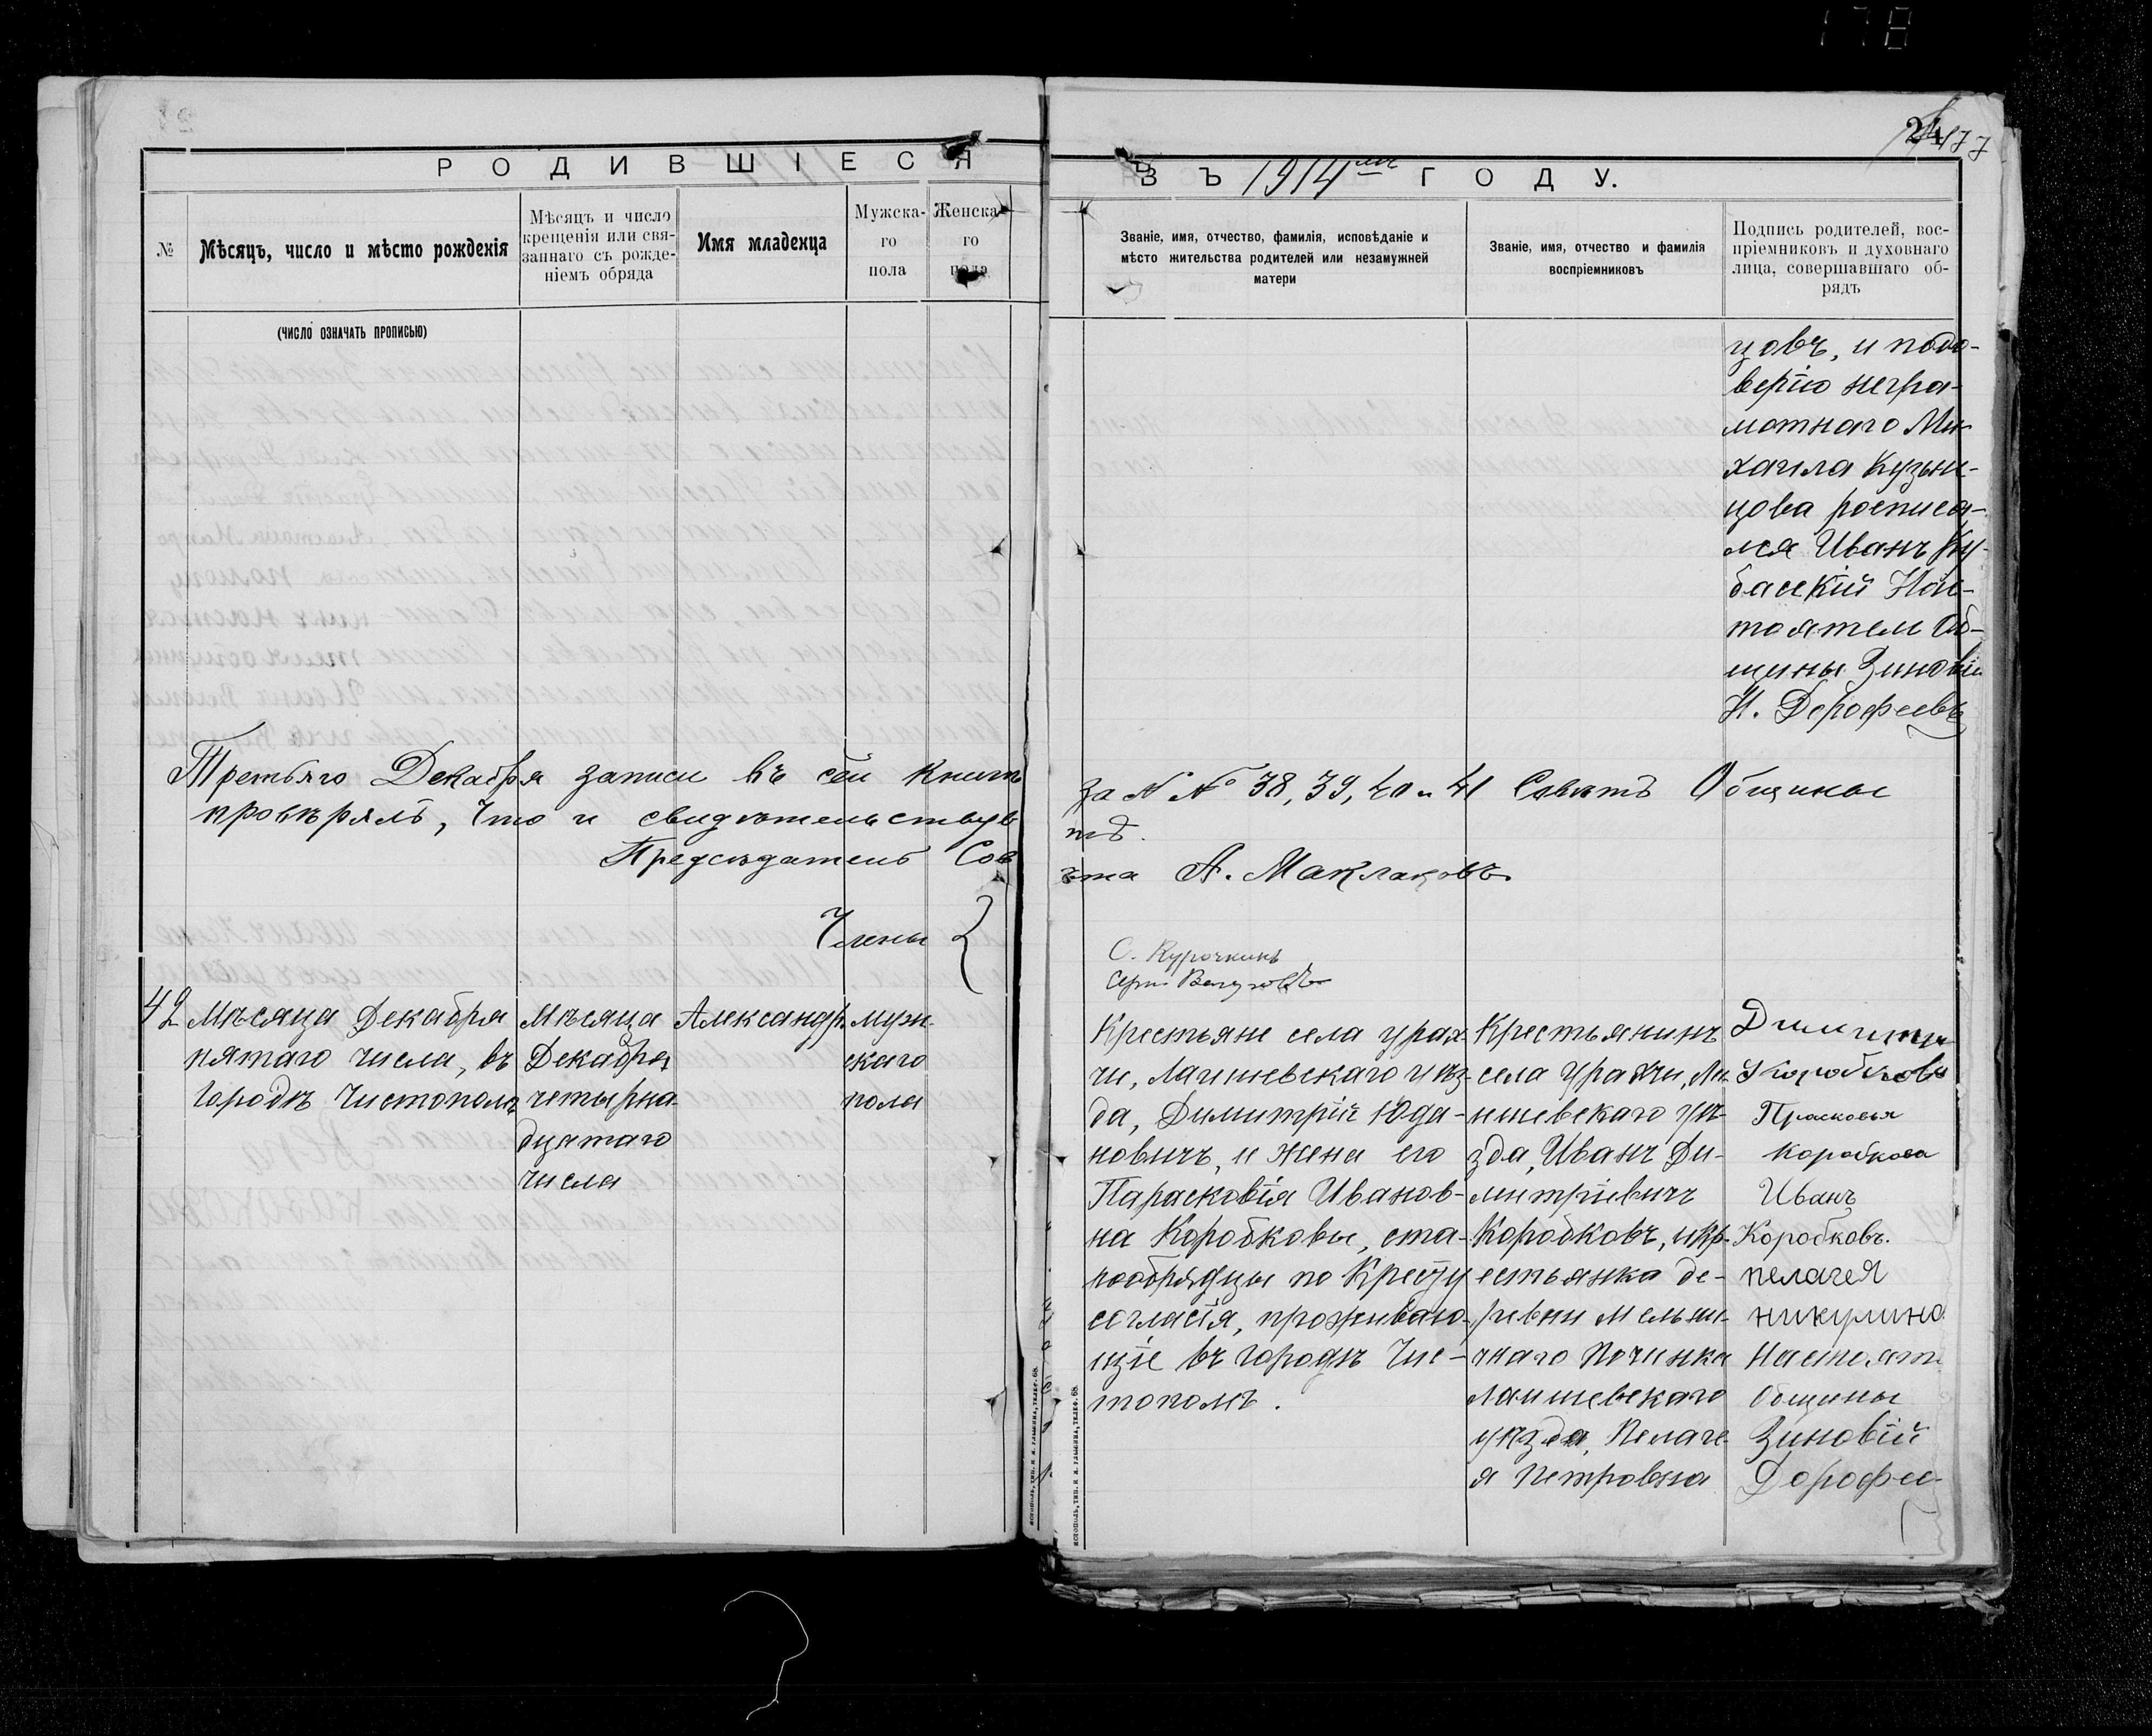 178
24
177
РОДИВШІЕСЯ
ВЪ 1914мъ ГОДУ.
№
Мѣсяцъ, число и мѣсто рожденія
Мѣсяцъ и число
крещенія или свя-
заннаго съ рожде-
ніемъ обряда
Имя младенца
Мужска-
го
пола
Женска-
го
пола
Званіе, имя, отчество, фамилія, исповѣданіе и
мѣсто жительства родителей или незамужней
матери
Званіе, имя, отчество и фамилія
воспріемниковъ
Подпись родителей, вос-
пріемниковъ и духовнаго
лица, совершавшаго об-
рядъ
(ЧИСЛО ОЗНАЧАТЬ ПРОПИСЬЮ)
цовъ, и подо-
верію негра-
мотнаго Ми-
хаила Кузьни-
цова росписа-
лся Иванъ Ку-
баскій Нас-
тоятель Об-
щины Зиновій
И. Дорофеевъ
Третьяго Декабря записи въ сей книгѣ за №№ 38, 39, 40 и 41 Совѣтъ Общины
провѣрялъ, что и свидѣтельствуетъ.
Предсѣдатель Совѣта А. Маклаковъ
Члены
С. Курочкинъ
42
Мѣсяца Декабря
пятаго числа, въ
городѣ Чистополѣ
Мѣсяца
Декабря
четырна-
дцатаго
числа
Александръ
муж-
скаго
пола
Крестьяне села Урах-
чи, Лаишевскаго уѣз-
да, Димитрій Юда-
новичъ, и жена его
Парасковія Иванов-
на Коробковы, ста-
рообрядцы по Кресту
согласія, проживаю-
щіе въ городѣ Чис-
тополѣ.
Крестьянинъ
села Урахчи, Ла-
ишевскаго уѣ-
зда, Иванъ Ди-
митріевичъ
Коробковъ, и кр-
естьянка де-
ревни Мельни-
чнаго Починка
Лаишевскаго
уѣзда, Пелаге-
я Петровна
Димитри
Коробковъ
Прасковья
Коробкова
Иванъ
Коробковъ.
пелагея
никулина
Настоят.
Общины
Зиновій
Дорофее-